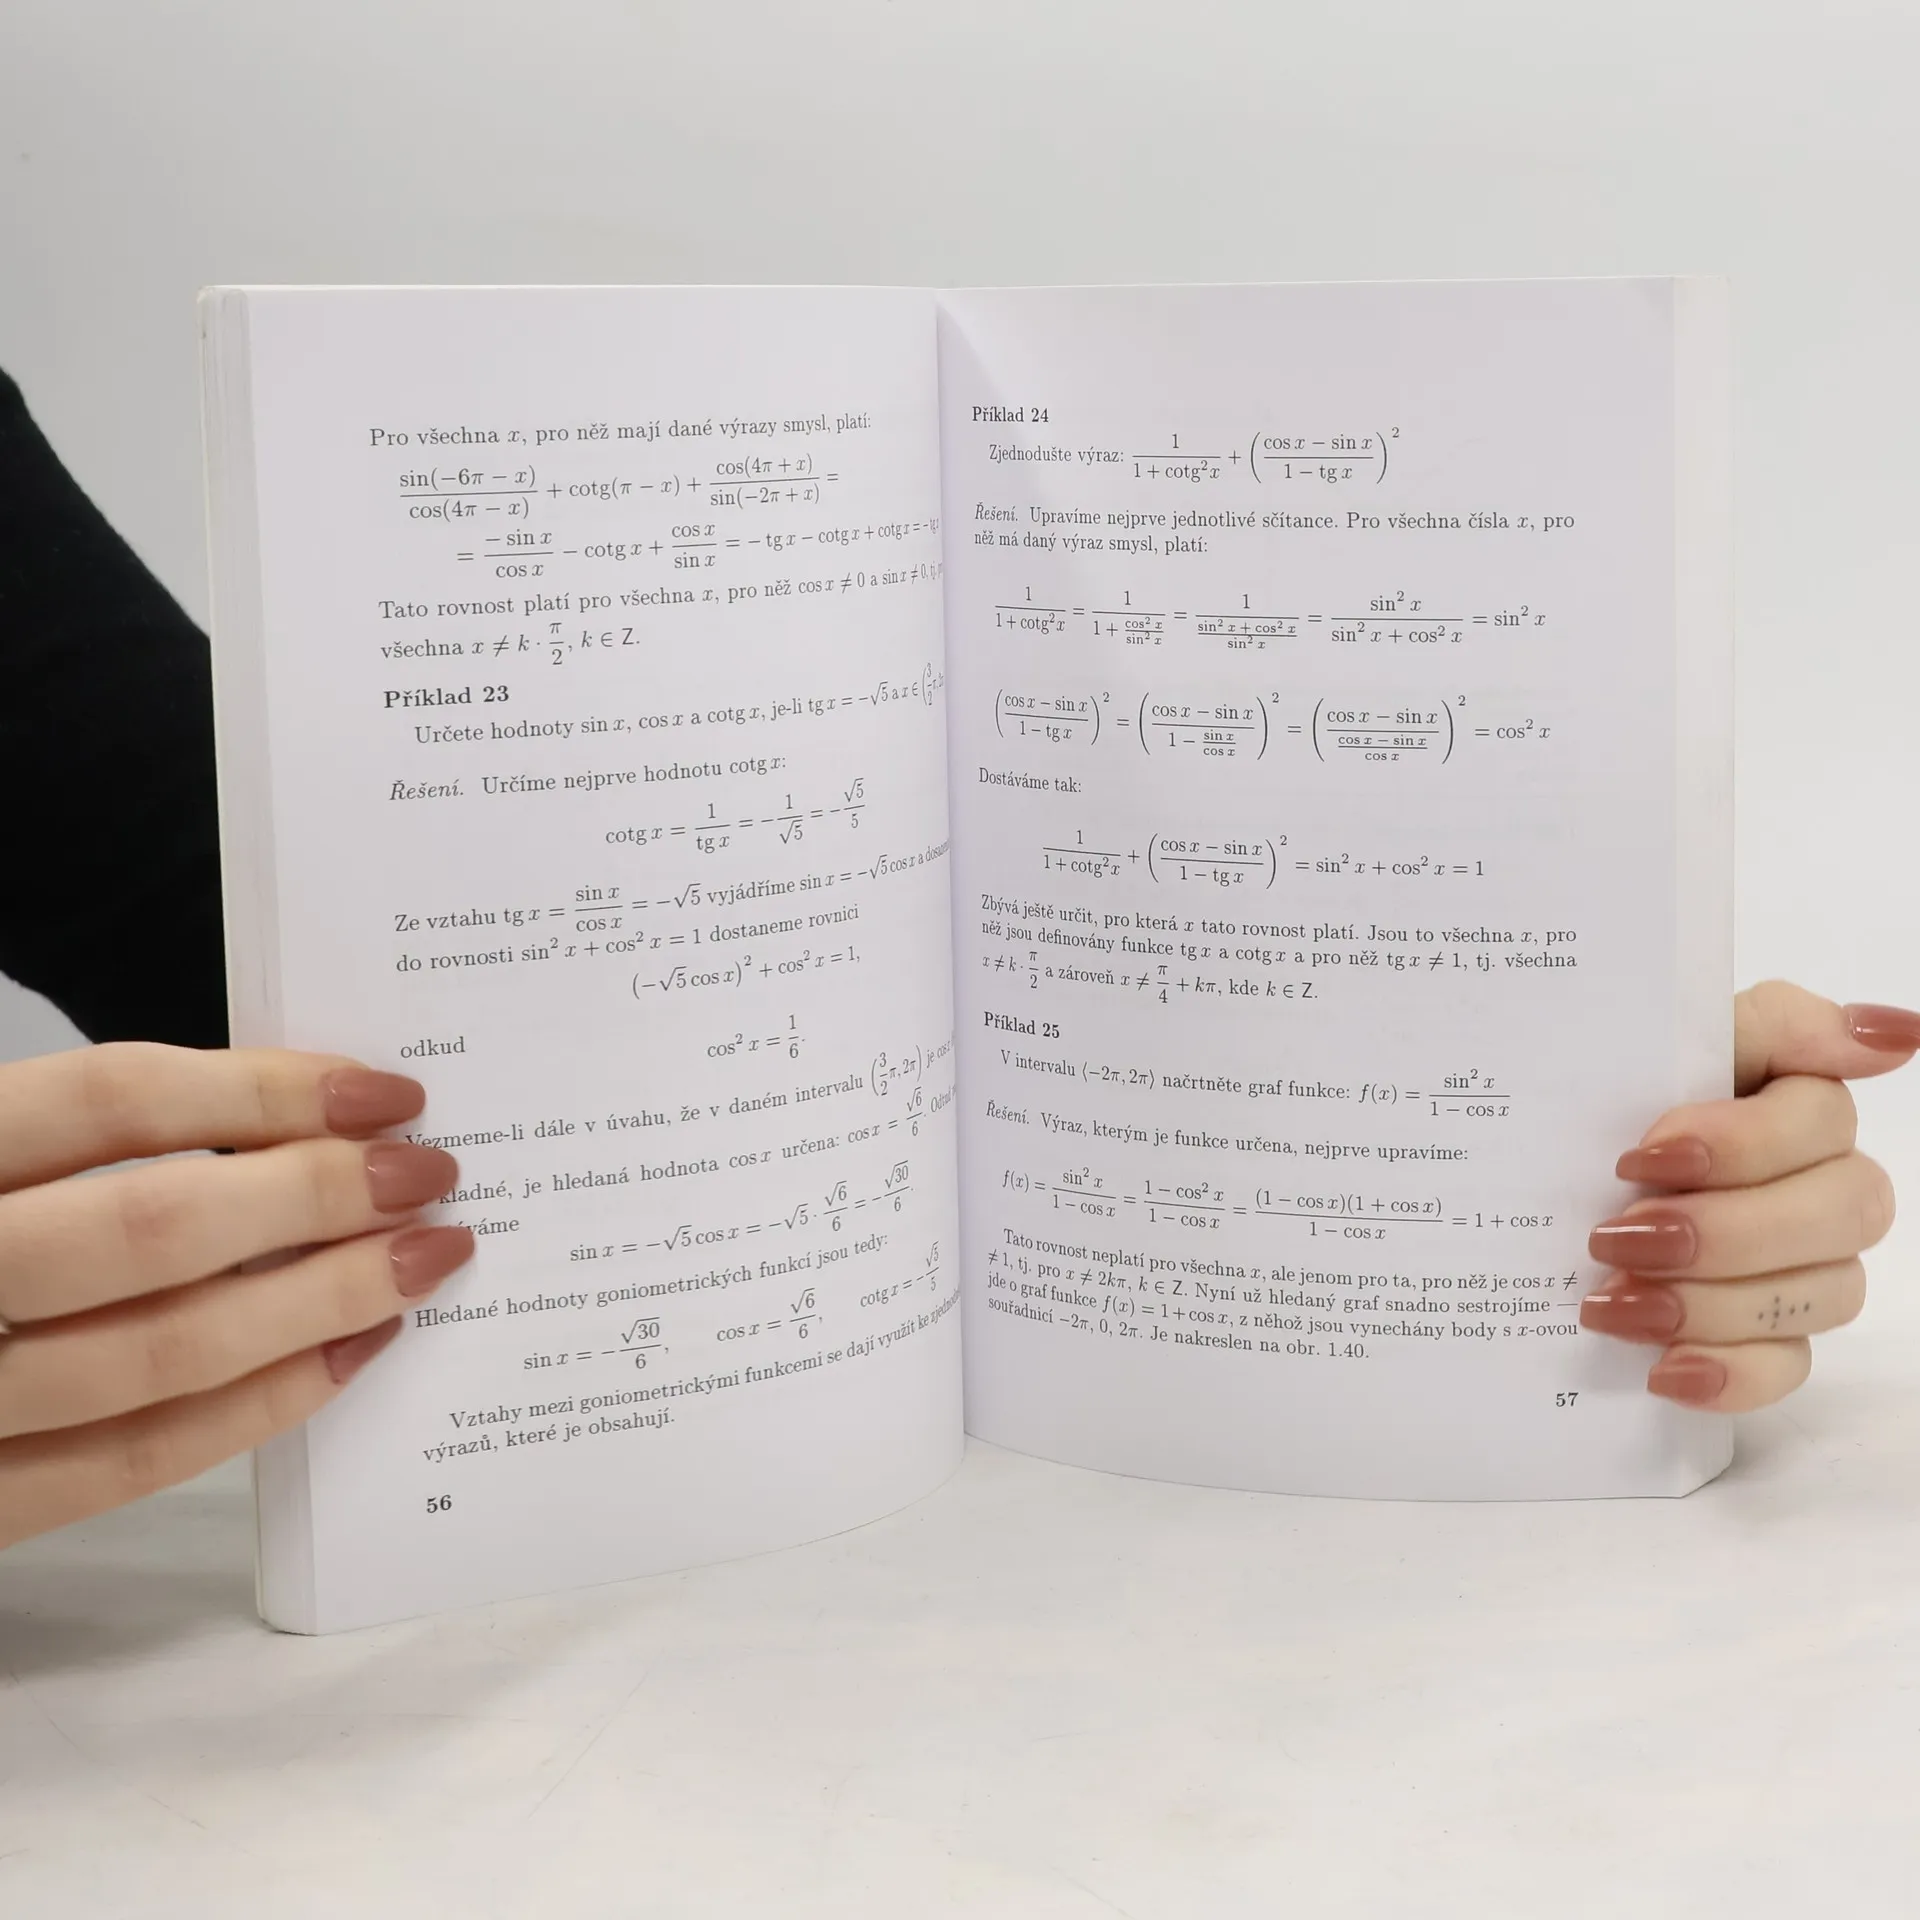 Pro všechna x, pro něž mají dané výrazy smysl, platí:
sin(−6π − x)/cos(4π − x) + cotg(π − x) + cos(4π + x)/sin(−2π + x) =
= − sin x/cos x − cotg x + cos x/sin x = − tg x − cotg x + cotg x = − tg x
Tato rovnost platí pro všechna x, pro něž cos x ≠ 0 a sin x ≠ 0, tj.
všechna x ≠ k · π/2, k ∈ Z.
Příklad 23
Určete hodnoty sin x, cos x a cotg x, je-li tg x = −√5 a x ∈ (3/2 π, 2π
Řešení. Určíme nejprve hodnotu cotg x:
cotg x = 1/tg x = − 1/√5 = − √5/5
Ze vztahu tg x = sin x/cos x = −√5 vyjádříme sin x = −√5 cos x a
do rovnosti sin² x + cos² x = 1 dostaneme rovnici
(−√5 cos x)² + cos² x = 1,
odkud cos² x = 1/6.
Vezmeme-li dále v úvahu, že v daném intervalu (3/2 π, 2π) je cos x
kladné, je hledaná hodnota cos x určena: cos x = √6/6. Odtud
váme
sin x = −√5 cos x = −√5 · √6/6 = − √30/6.
Hledané hodnoty goniometrických funkcí jsou tedy:
sin x = − √30/6, cos x = √6/6, cotg x = − √5/5
Vztahy mezi goniometrickými funkcemi se dají využít ke
výrazů, které je obsahují.
56
Příklad 24
Zjednodušte výraz: 1/(1 + cotg² x) + ((cos x − sin x)/(1 − tg x))²
Řešení. Upravíme nejprve jednotlivé sčítance. Pro všechna čísla x, pro
něž má daný výraz smysl, platí:
1/(1 + cotg² x) = 1/(1 + cos² x/sin² x) = 1/((sin² x + cos² x)/sin² x) = sin² x/(sin² x + cos² x) = sin² x
((cos x − sin x)/(1 − tg x))² = ((cos x − sin x)/(1 − sin x/cos x))² = ((cos x − sin x)/((cos x − sin x)/cos x))² = cos² x
Dostáváme tak:
1/(1 + cotg² x) + ((cos x − sin x)/(1 − tg x))² = sin² x + cos² x = 1
Zbývá ještě určit, pro která x tato rovnost platí. Jsou to všechna x, pro
něž jsou definovány funkce tg x a cotg x a pro něž tg x ≠ 1, tj. všechna
x ≠ k · π/2 a zároveň x ≠ π/4 + kπ, kde k ∈ Z.
Příklad 25
V intervalu ⟨−2π, 2π⟩ načrtněte graf funkce: f(x) = sin² x/(1 − cos x)
Řešení. Výraz, kterým je funkce určena, nejprve upravíme:
f(x) = sin² x/(1 − cos x) = (1 − cos² x)/(1 − cos x) = (1 − cos x)(1 + cos x)/(1 − cos x) = 1 + cos x
Tato rovnost neplatí pro všechna x, ale jenom pro ta, pro něž je cos x ≠
≠ 1, tj. pro x ≠ 2kπ, k ∈ Z. Nyní už hledaný graf snadno sestrojíme —
jde o graf funkce f(x) = 1 + cos x, z něhož jsou vynechány body s x-ovou
souřadnicí −2π, 0, 2π. Je nakreslen na obr. 1.40.
57